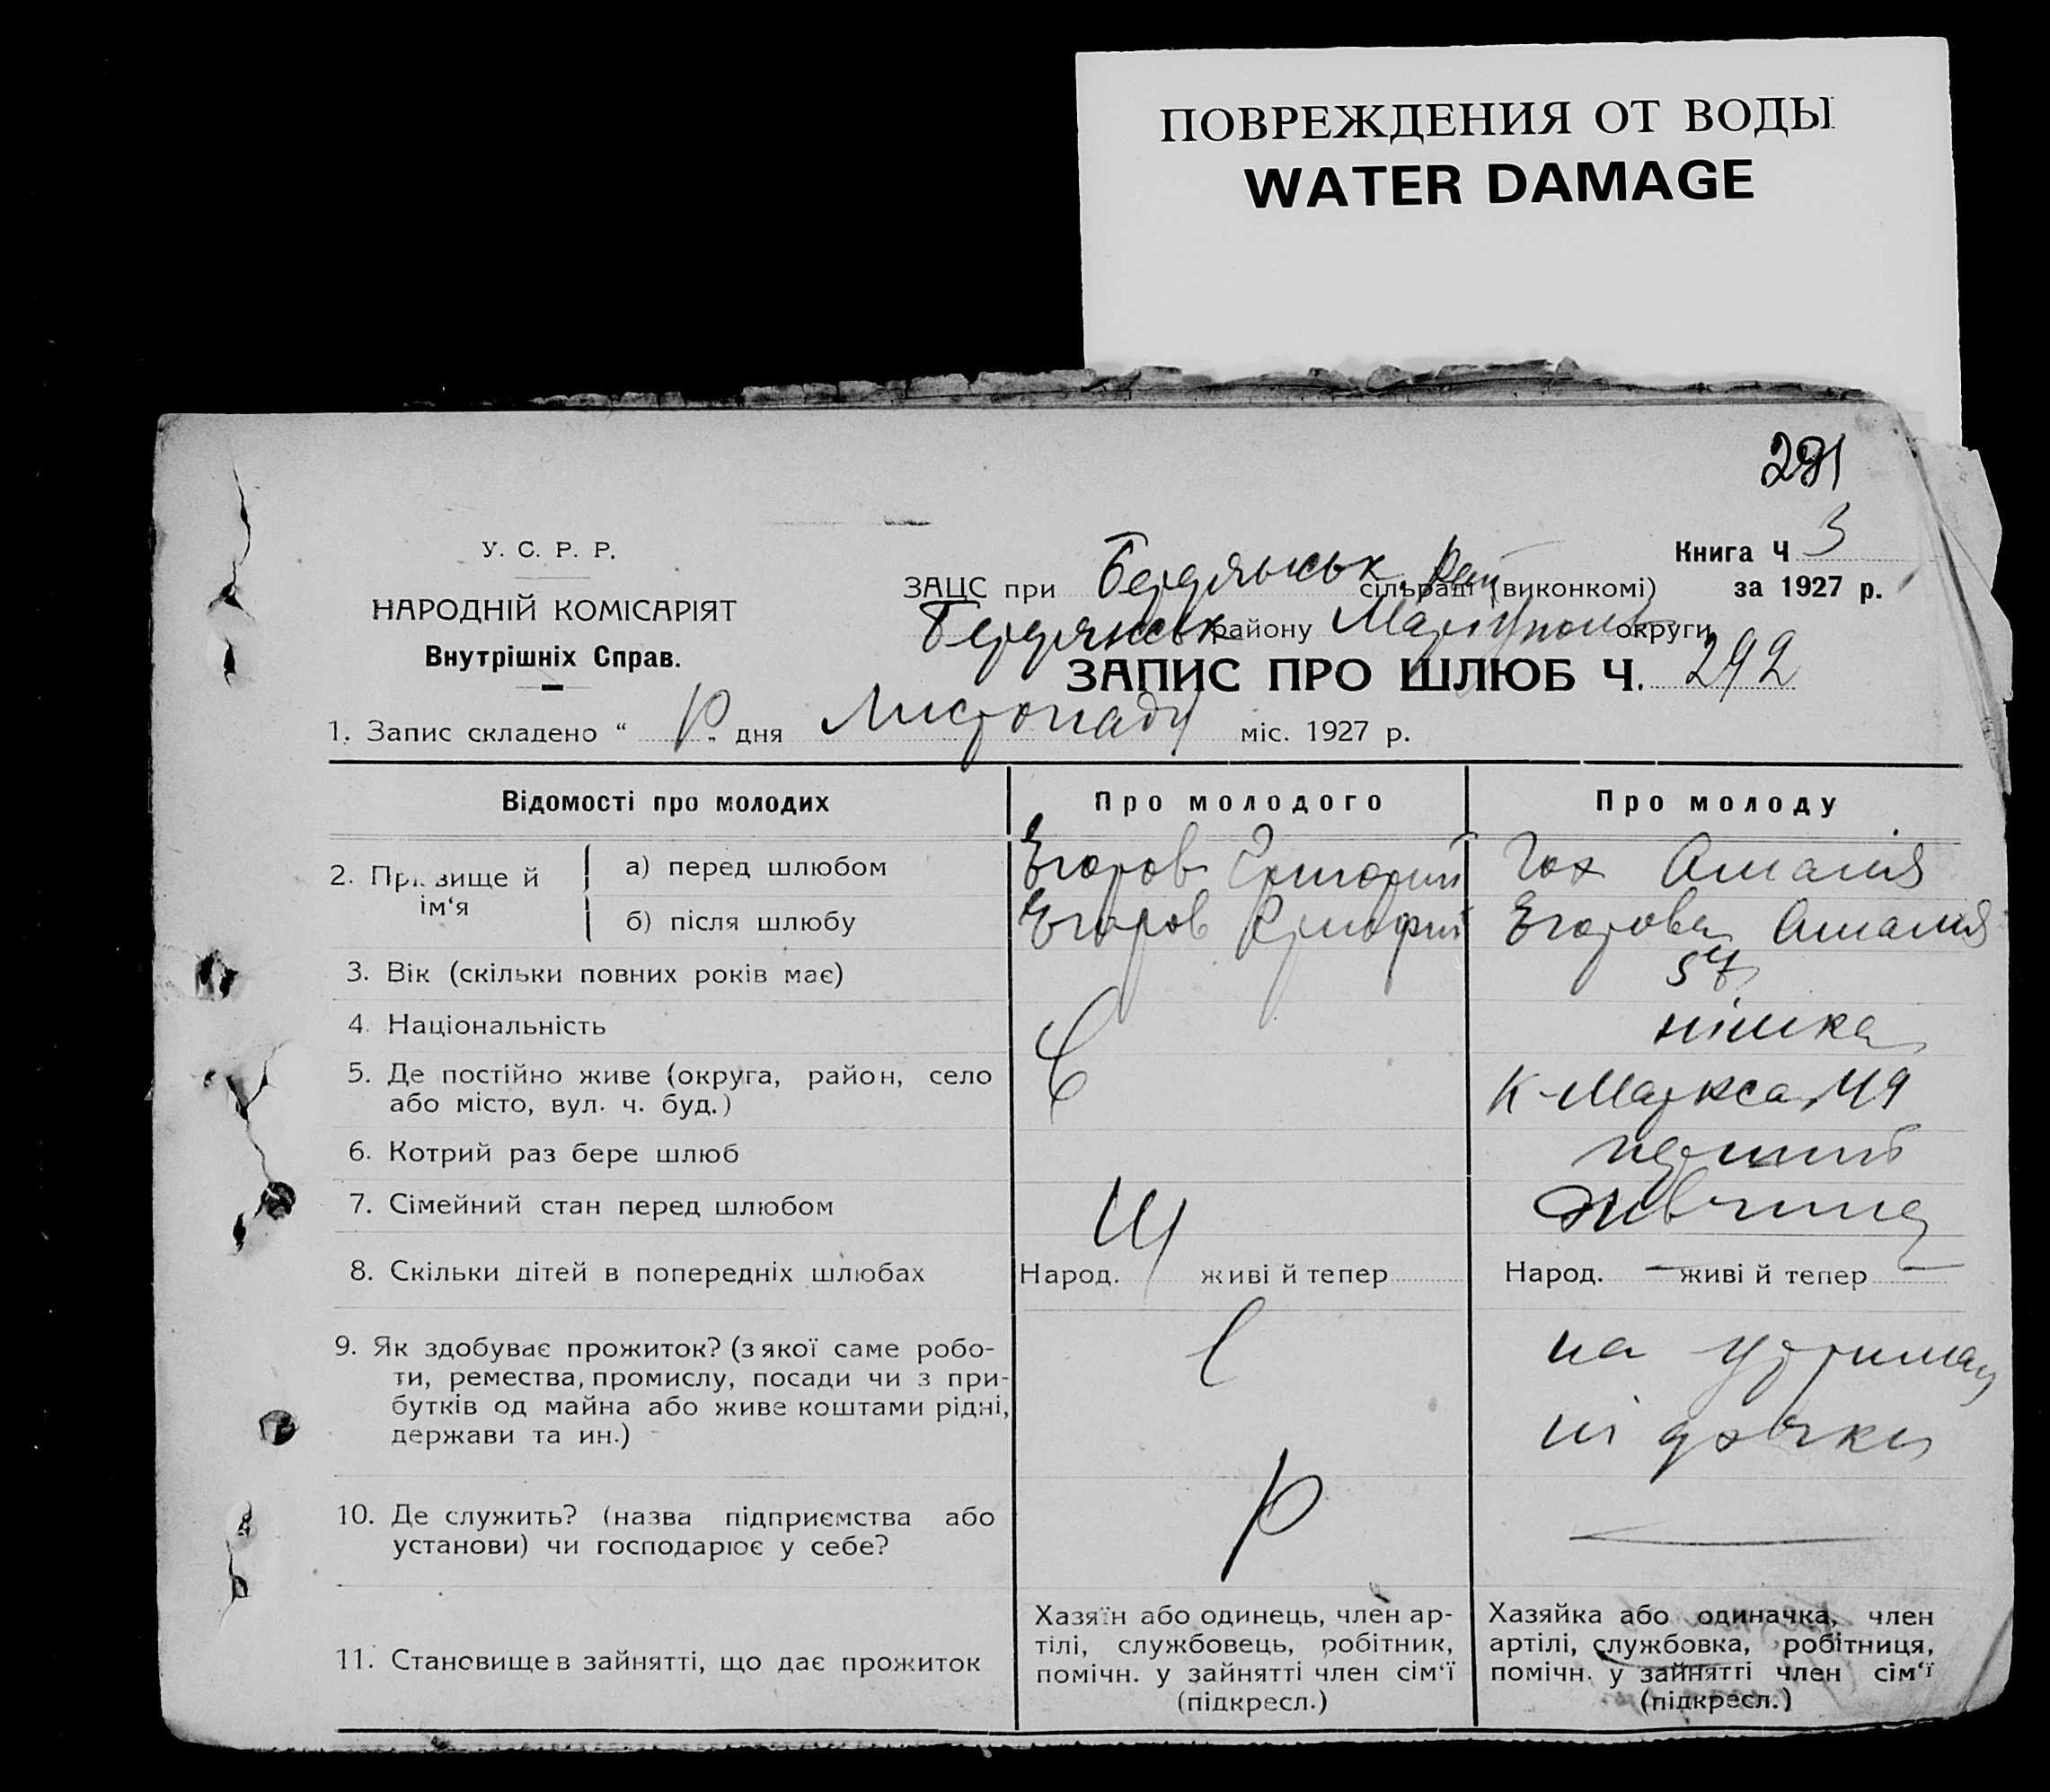 ПОВРЕЖДЕНИЯ ОТ ВОДЫ
WATER DAMAGE
291
У. С. Р. Р.
НАРОДНІЙ КОМІСАРІЯТ
Внутрішніх Справ.
Книга Ч 3
за 1927 р.
ЗАЦС при Бердянськ. Рай сільраді (виконкомі)
Бердянськ району Маріупольс округи
ЗАПИС ПРО ШЛЮБ Ч. 292
1. Запис складено " " дня Листопаду міс. 1927 р.
Відомості про молодих
Про молодого
Про молоду
2. Прізвище й ім'я
а) перед шлюбом
Егоров Григорий
Гох Амалия
б) після шлюбу
Егоров Григорий
Егорова Амалия
3. Вік (скільки повних років має)
4. Національність
німка
5. Де постійно живе (округа, район, село
або місто, вул. ч. буд.)
К-Маркса 49
6. Котрий раз бере шлюб
перший
7. Сімейний стан перед шлюбом
дивчина
8. Скільки дітей в попередніх шлюбах
Народ. живі й тепер
Народ. — живі й тепер —
9. Як здобуває прожиток? (з якої саме робо-
ти, ремества, промислу, посади чи з при-
бутків од майна або живе коштами рідні,
держави та ин.)
на утриман
ні дочки
10. Де служить? (назва підприємства або
установи) чи господарює у себе?
11. Становище в зайнятті, що дає прожиток
Хазяїн або одинець, член ар-
тілі, службовець, робітник,
помічн. у зайнятті член сім'ї
(підкресл.)
Хазяйка або одиначка, член
артілі, службовка, робітниця,
помічн. у зайнятті член сім'ї
(підкресл.)